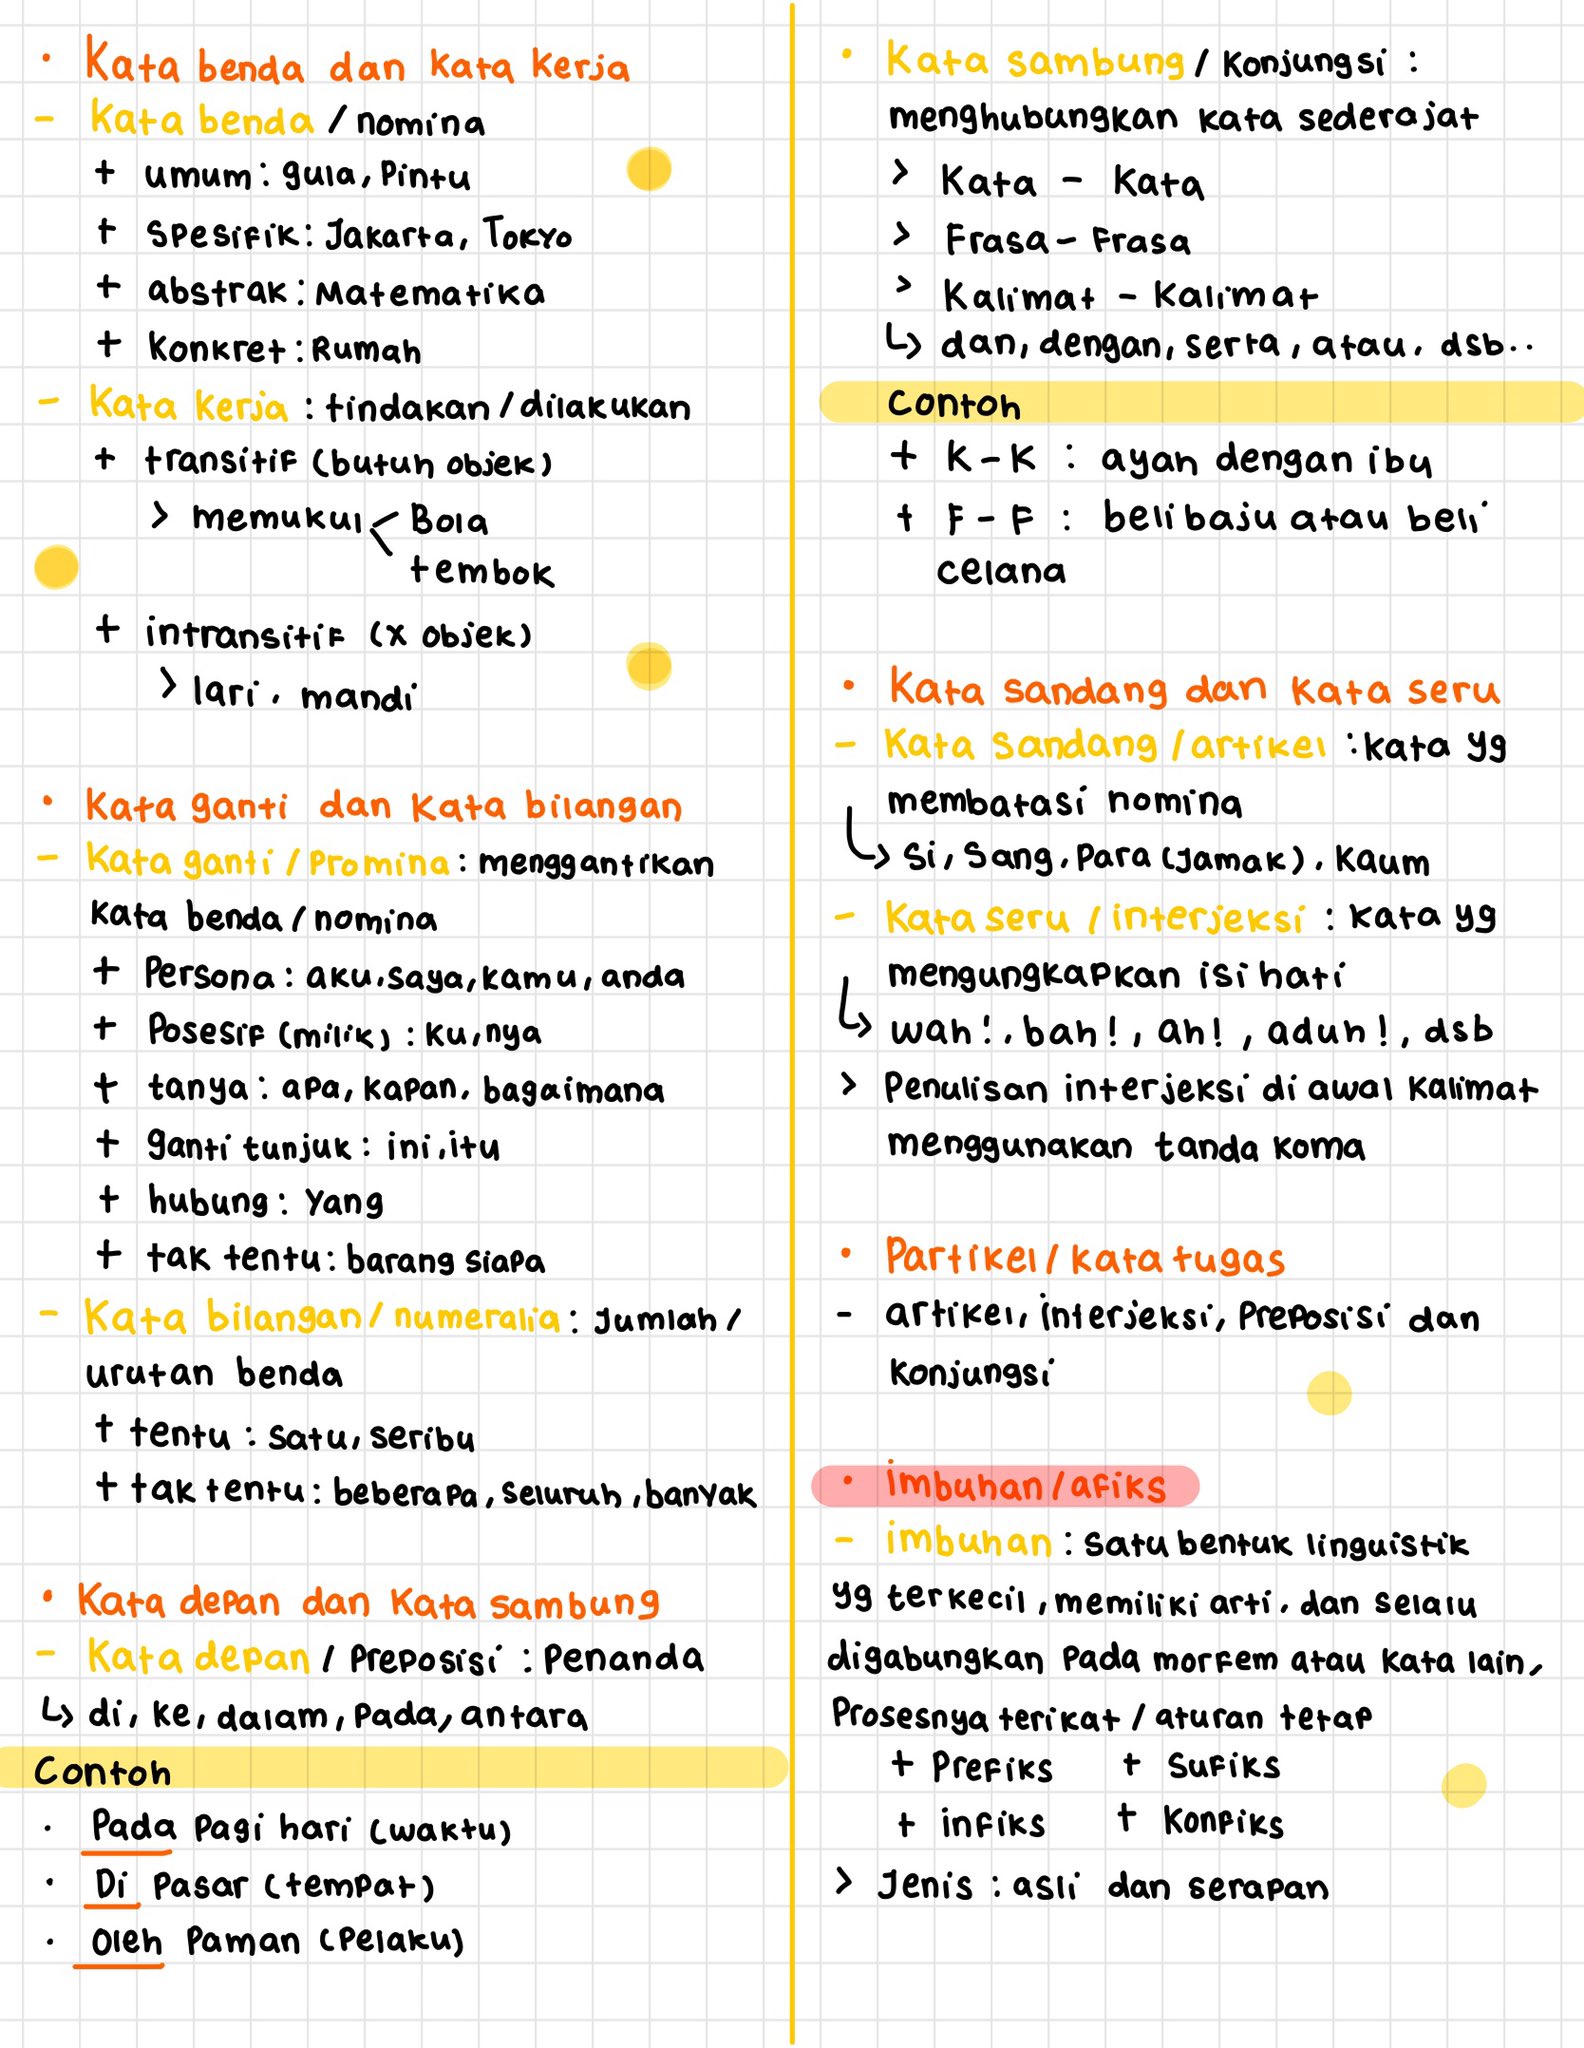 • Kata benda dan kata kerja
- Kata benda / nomina
+ umum : gula, Pintu
+ Spesifik : Jakarta, Tokyo
+ abstrak : Matematika
+ Konkret : Rumah
- Kata kerja : tindakan / dilakukan
+ transitif (butuh objek)
> memukul < Bola
tembok
+ intransitif (x objek)
> lari, mandi
• Kata ganti dan Kata bilangan
- Kata ganti / Promina : menggantikan
Kata benda / nomina
+ Persona : aku, saya, kamu, anda
+ Posesif (milik) : ku, nya
+ tanya : apa, kapan, bagaimana
+ ganti tunjuk : ini, itu
+ hubung : Yang
+ tak tentu : barang siapa
- Kata bilangan / numeralia : Jumlah /
urutan benda
+ tentu : satu, seribu
+ tak tentu : beberapa, seluruh, banyak
• Kata depan dan Kata sambung
- Kata depan / Preposisi : Penanda
↳ di, ke, dalam, Pada, antara
Contoh
• Pada Pagi hari (waktu)
• Di Pasar (tempat)
• Oleh Paman (Pelaku)
• Kata sambung / Konjungsi :
menghubungkan kata sederajat
> Kata - Kata
> Frasa - Frasa
> Kalimat - Kalimat
↳ dan, dengan, serta, atau, dsb..
Contoh
+ K - K : ayah dengan ibu
+ F - F : beli baju atau beli
celana
• Kata sandang dan Kata seru
- Kata Sandang / artikel : kata yg
membatasi nomina
↳ Si, Sang, Para (jamak), Kaum
- Kata seru / interjeksi : kata yg
mengungkapkan isi hati
↳ wah!, bah!, ah!, aduh!, dsb
> Penulisan interjeksi di awal Kalimat
menggunakan tanda koma
• Partikel / kata tugas
- artikel, interjeksi, Preposisi dan
Konjungsi
• imbuhan / afiks
- imbuhan : Satu bentuk linguistik
yg terkecil, memiliki arti, dan selalu
digabungkan Pada morfem atau kata lain,
Prosesnya terikat / aturan tetap
+ Prefiks + Sufiks
+ infiks + Konfiks
> Jenis : asli dan serapan